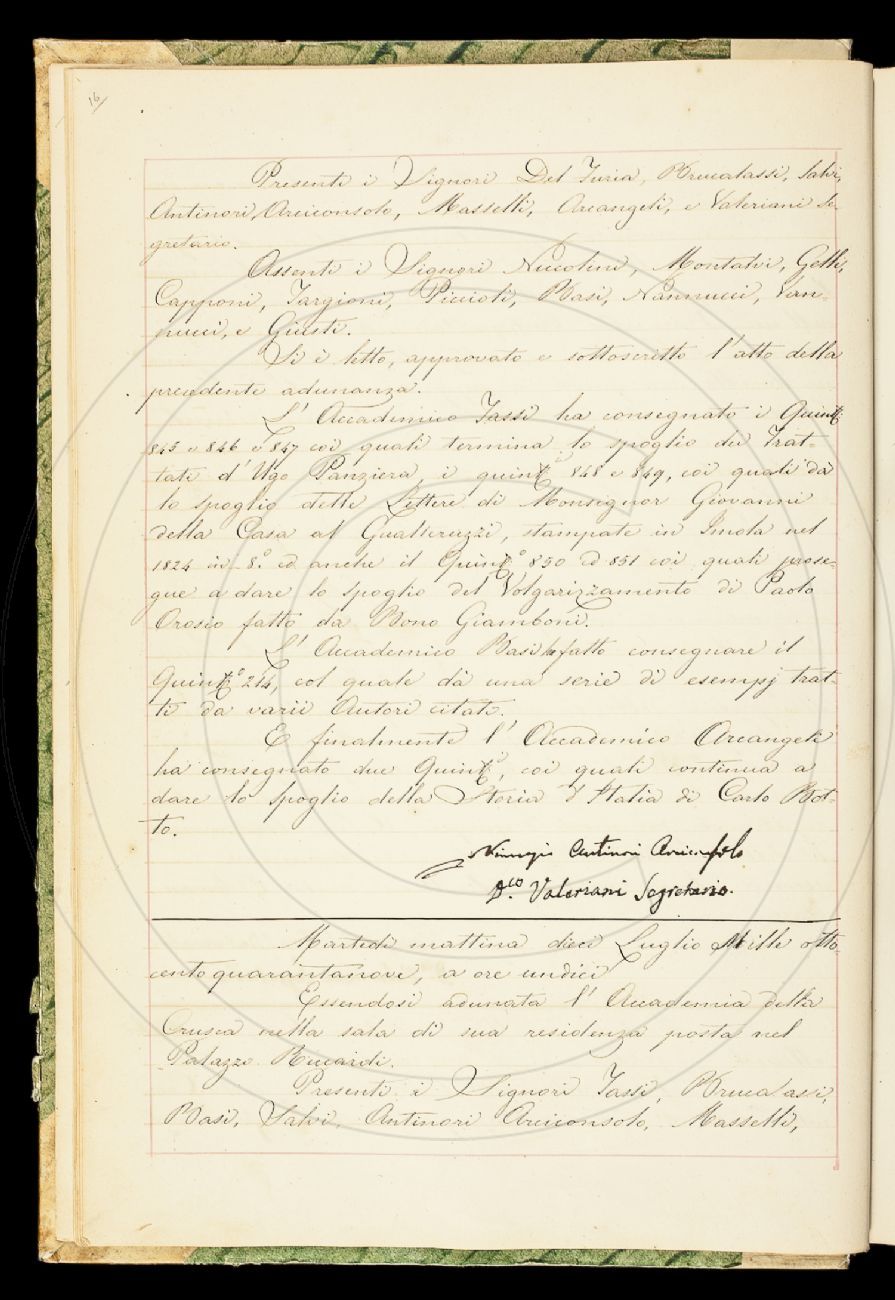 16
Presenti i Signori Del Furia, Brucalassi, Salvi,
Antinori Arciconsolo, Masselli, Arcangeli, e Valeriani Se-
gretario.
Assenti i Signori Niccolini, Montalvi, Gelli,
Capponi, Targioni, Piccioli, Basi, Nannucci, Van-
nucci, e Giusti.
Si è letto, approvato e sottoscritto l' atto della
precedente adunanza.
L' Accademico Tassi ha consegnato i Quint.
845 e 846 e 847 coi quali termina lo spoglio dei Trat-
tati d' Ugo Panziera, i quint. 848 e 849, coi quali dà
lo spoglio delle Lettere di Monsignor Giovanni
della Casa al Gualteruzzi, stampate in Imola nel
1824 in 8.° ed anche il Quint.° 850 ed 851 coi quali prose-
gue a dare lo spoglio del Volgarizzamento di Paolo
Orosio fatto da Bono Giamboni.
L' Accademico Basi ha fatto consegnare il
Quint.° 214, col quale dà una serie di esempj trat-
ti da varii Autori citati.
E finalmente l' Accademico Arcangeli
ha consegnato due Quint.i, coi quali continua a
dare lo spoglio della Storia d' Italia di Carlo Bot-
to.
Antinori Arciconsolo
D.co Valeriani Segretario.
Martedì mattina dieci Luglio Mille otto-
cento quarantanove, a ore undici
Essendosi adunata l' Accademia della
Crusca nella sala di sua residenza posta nel
Palazzo Riccardi.
Presenti i Signori Tassi, Brucalassi,
Basi, Salvi, Antinori Arciconsolo, Masselli,